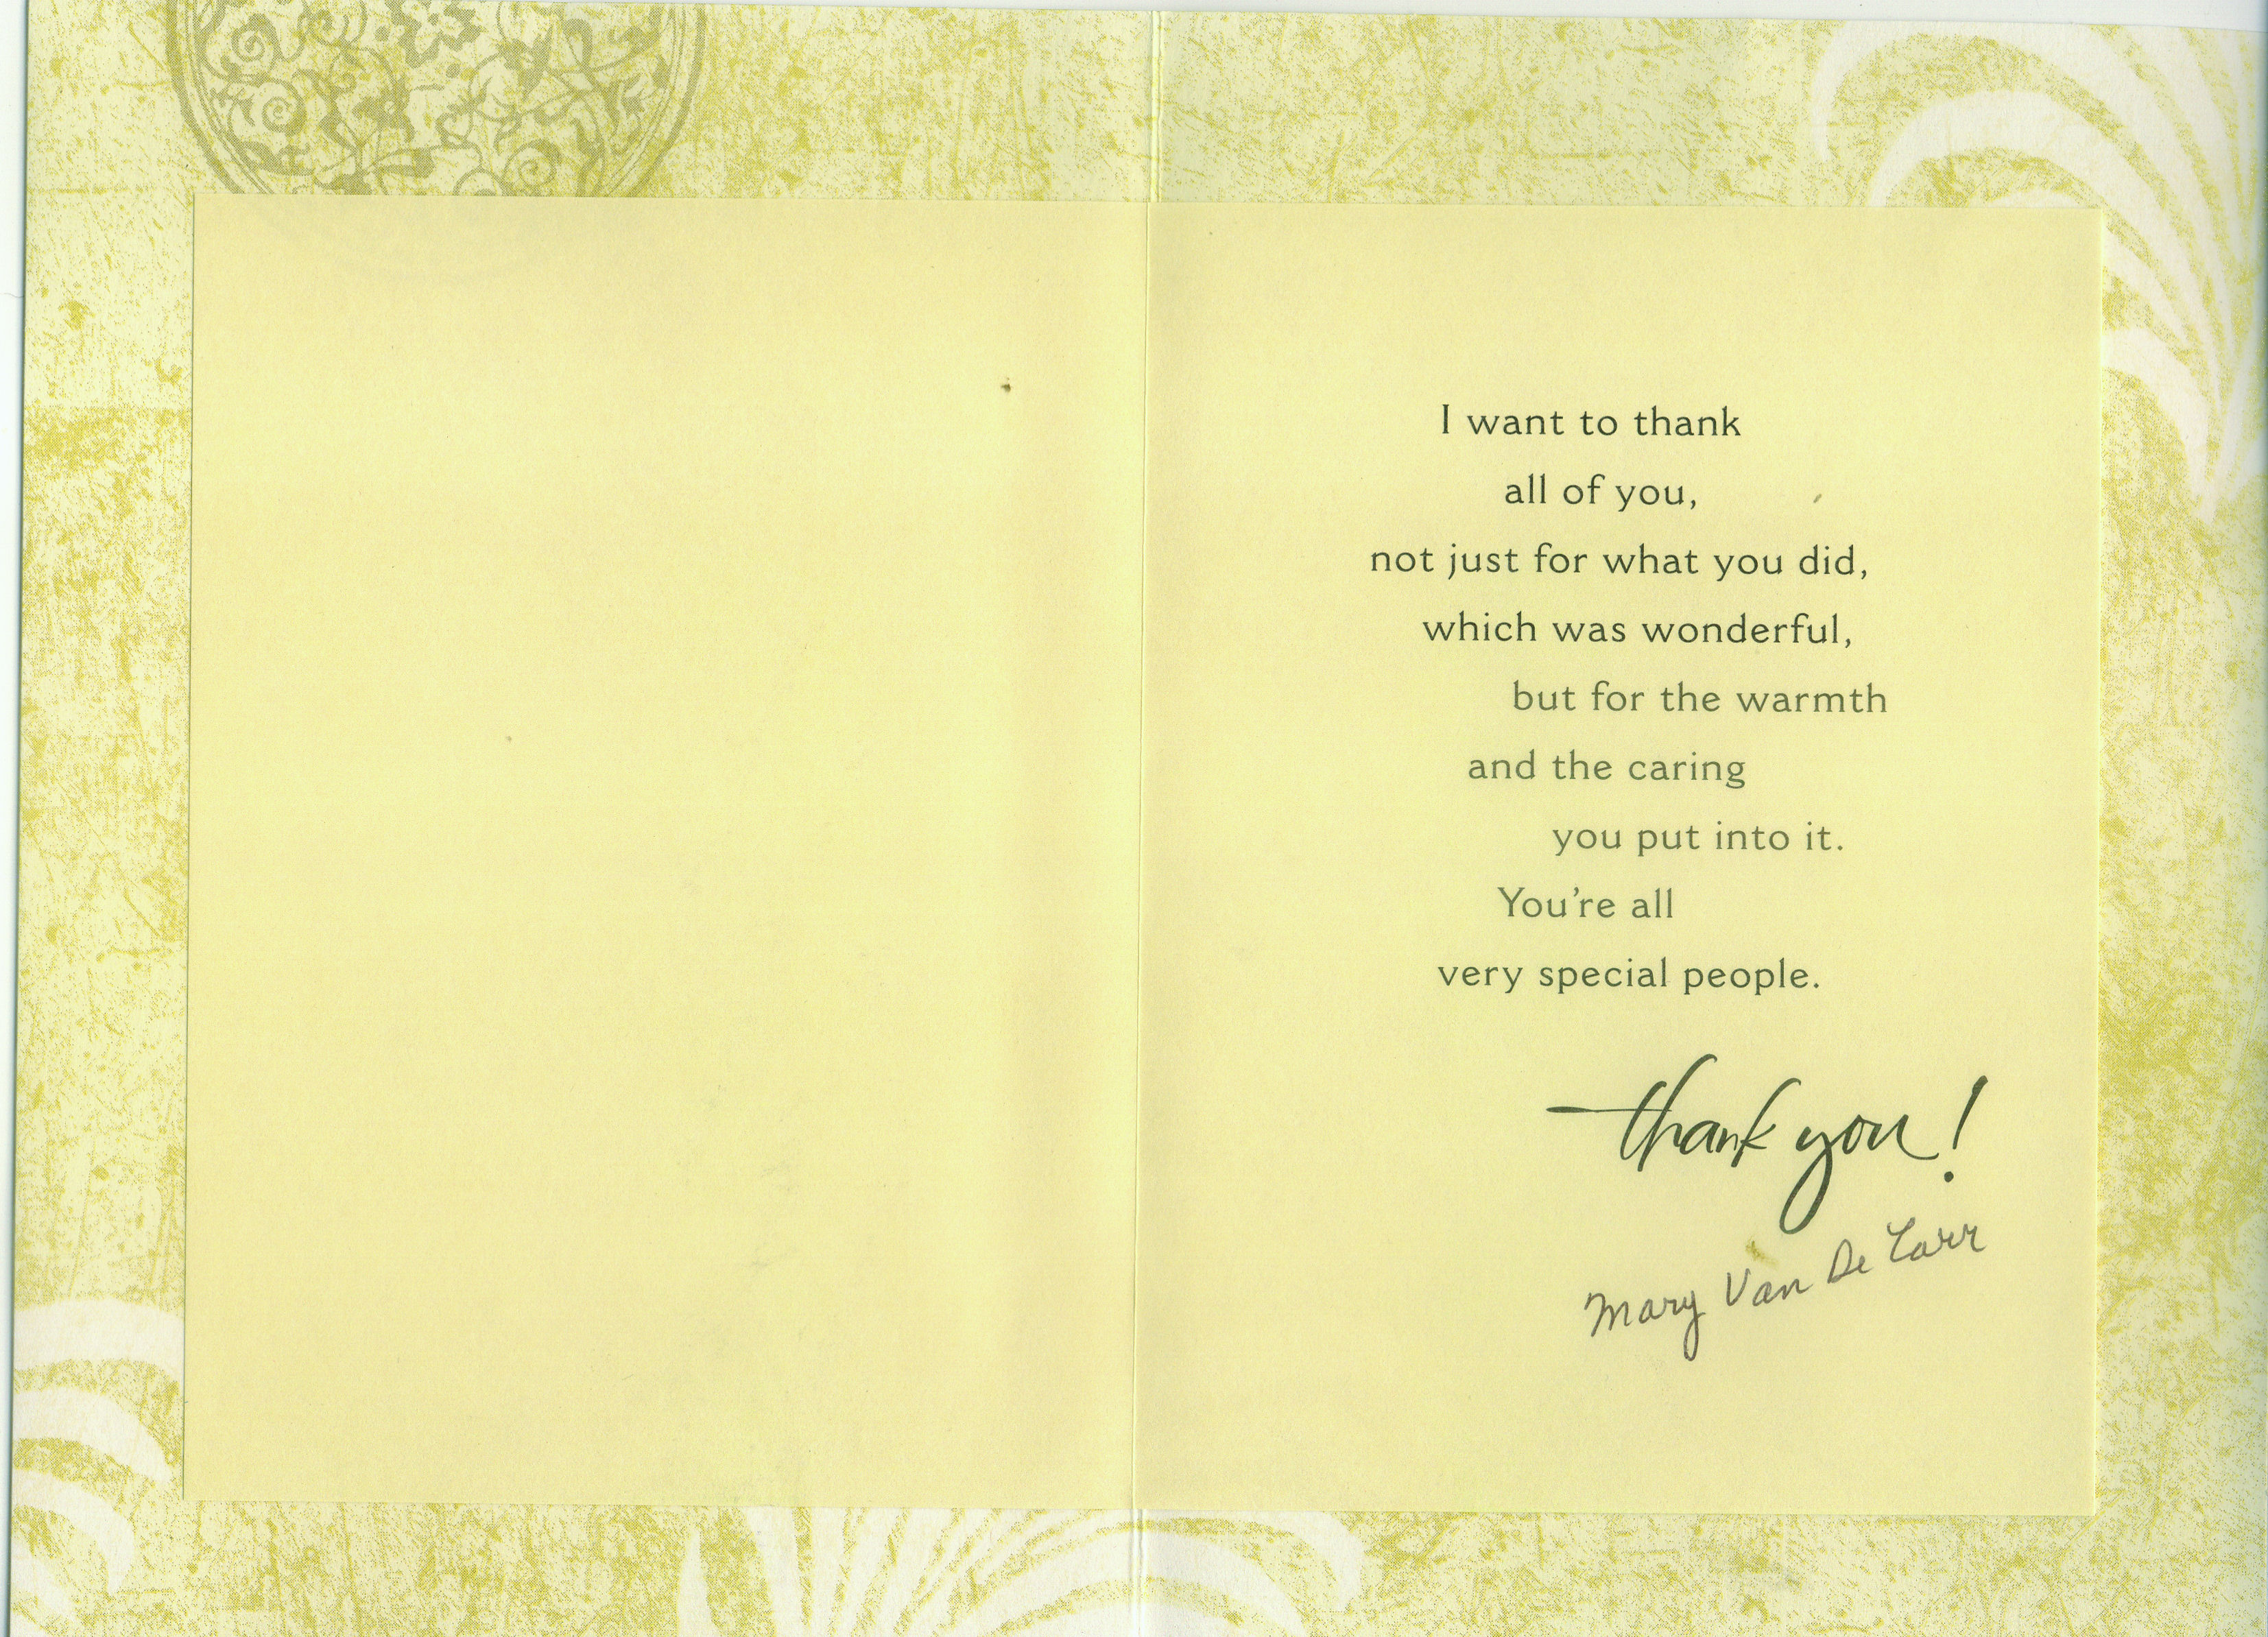 I want to thank
all of you,
not just for what you did,
which was wonderful,
but for the warmth
and the caring
you put into it.
You’re all
very special people.
thank you!
Mary Van De